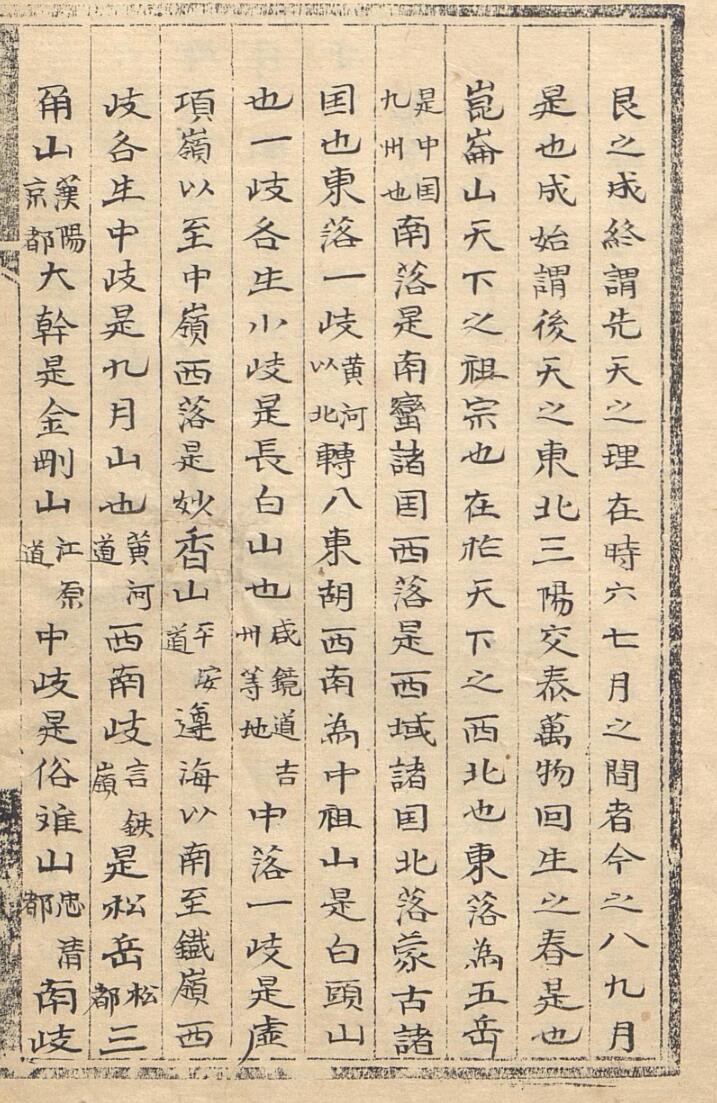 艮之成終謂先天之理在時六七月之間者今之八九月
是也成始謂後天之東北三陽交泰萬物回生之春是也
崑崙山天下之祖宗也在於天下之西北也東落為五岳
是中囯九州也南落是南蠻諸囯西落是西域諸囯北落蒙古諸
囯也東落一歧黄河以北轉八東胡西南為中祖山是白頭山
也一歧各生小歧是長白山也咸鏡道吉州等地中落一歧是虛
項嶺以至中嶺西落是妙香山平安道遵海以南至鐵嶺西
歧各生中歧是九月山也黃河道西南歧言鉄嶺是松岳松都三
甬山漢陽京都大幹是金剛山江原道中歧是俗难山忠清都南歧